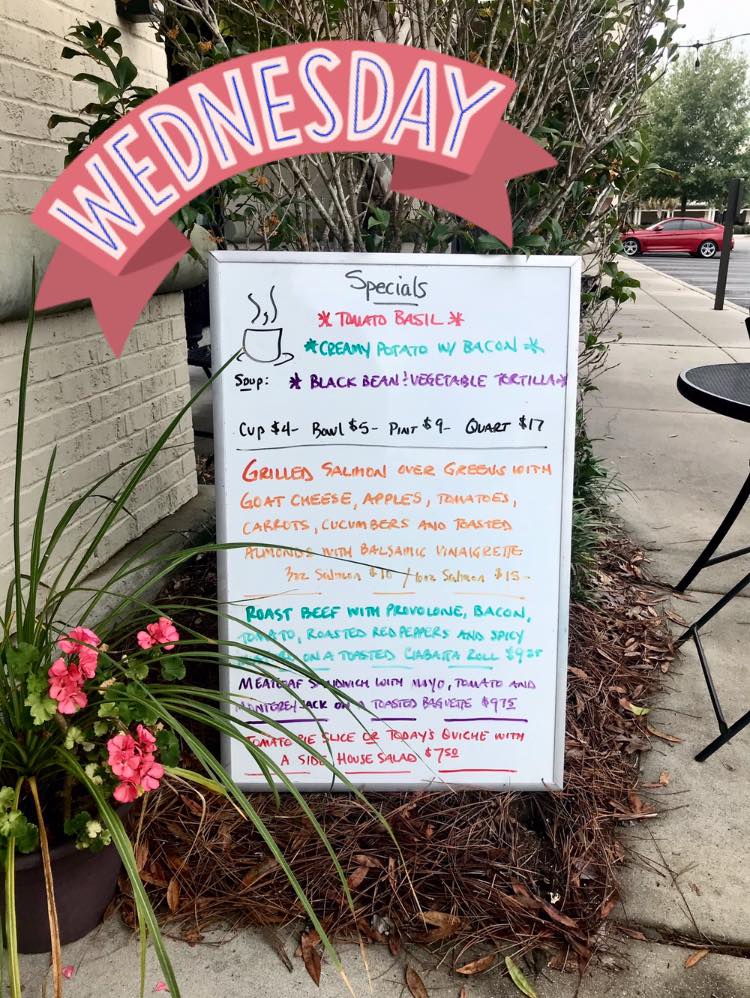 WEDNESDAY
Specials
* TOMATO BASIL *
* CREAMY POTATO W/ BACON *
Soup: * BLACK BEAN & VEGETABLE TORTILLA *
Cup $4- Bowl $5- PINT $9- QUART $17
GRILLED SALMON OVER GREENS WITH
GOAT CHEESE, APPLES, TOMATOES,
CARROTS, CUCUMBERS AND TOASTED
ALMONDS WITH BALSAMIC VINAIGRETTE
3oz Salmon $10 / 6oz Salmon $15-
ROAST BEEF WITH PROVOLONE, BACON,
TOMATO, ROASTED RED PEPPERS AND SPICY
ON A TOASTED CIABATTA ROLL
MEATLOAF SANDWICH WITH MAYO, TOMATO AND
MONTEREY JACK ON A TOASTED BAGUETTE $9.75
TOMATO PIE SLICE OR TODAY'S QUICHE WITH
A SIDE HOUSE SALAD $7.50